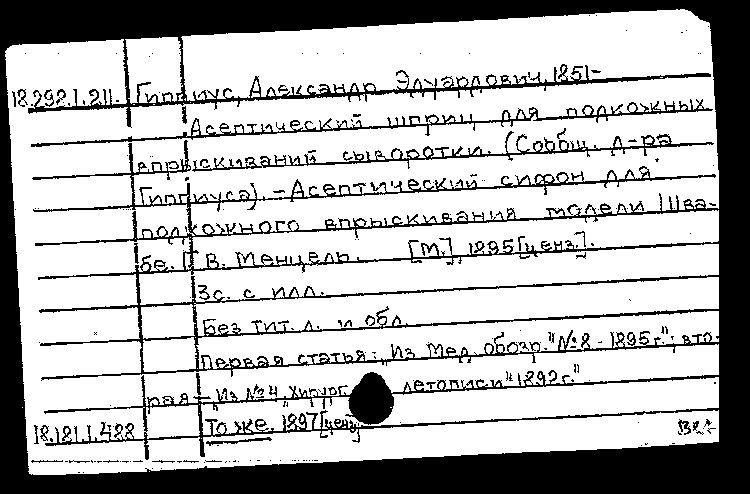 18.292.1.211. Гиппиус, Александр Эдуардович, 1851-
Асептический шприц для подкожных
впрыскиваний сыворотки. (Сообщ. д-ра
Гиппиуса). - Асептический сифон для
подкожного впрыскивания модели Шва-
бе. [Г. В. Менцель. [М.], 1895 [ценз.].
3с. с илл.
Без тит. л. и обл.
Первая статья: "Из Мед. обозр." №8 - 1895 г."; вто-
рая - "Из №4 "Хирург. летописи" 1892 г."
18.181.1.488 То же. 1897 [ценз]